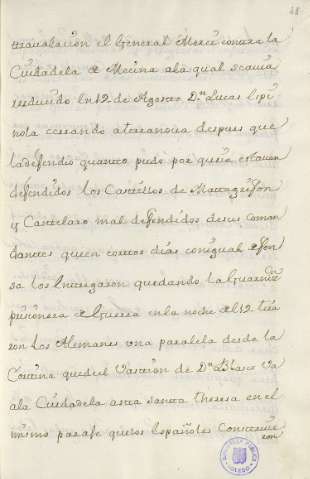 28
el General Merci contra la
Ciudadela de Mecina ala qual se avia
reducido En 12 de Agosto Dn Lucas Espi
nola cerrando a terranova despues que
la defendió quanto pudo por que ia estavan
defendidos los Castillos de Matagrifon
y Castelaro mal defendidos de sus Coman
dantes que en cortos dias con igual defen
sa los Entregaron quedando la Guarniz.n
prisionera de Guerra en la noche del 12 tira
ron los Alemanes una paralela desde la
Cortina que del Vastion de Dn Blasco va
a la Ciudadela asta santa theresa en el
mismo paraje que los Españoles Construie
ron
TOLEDO